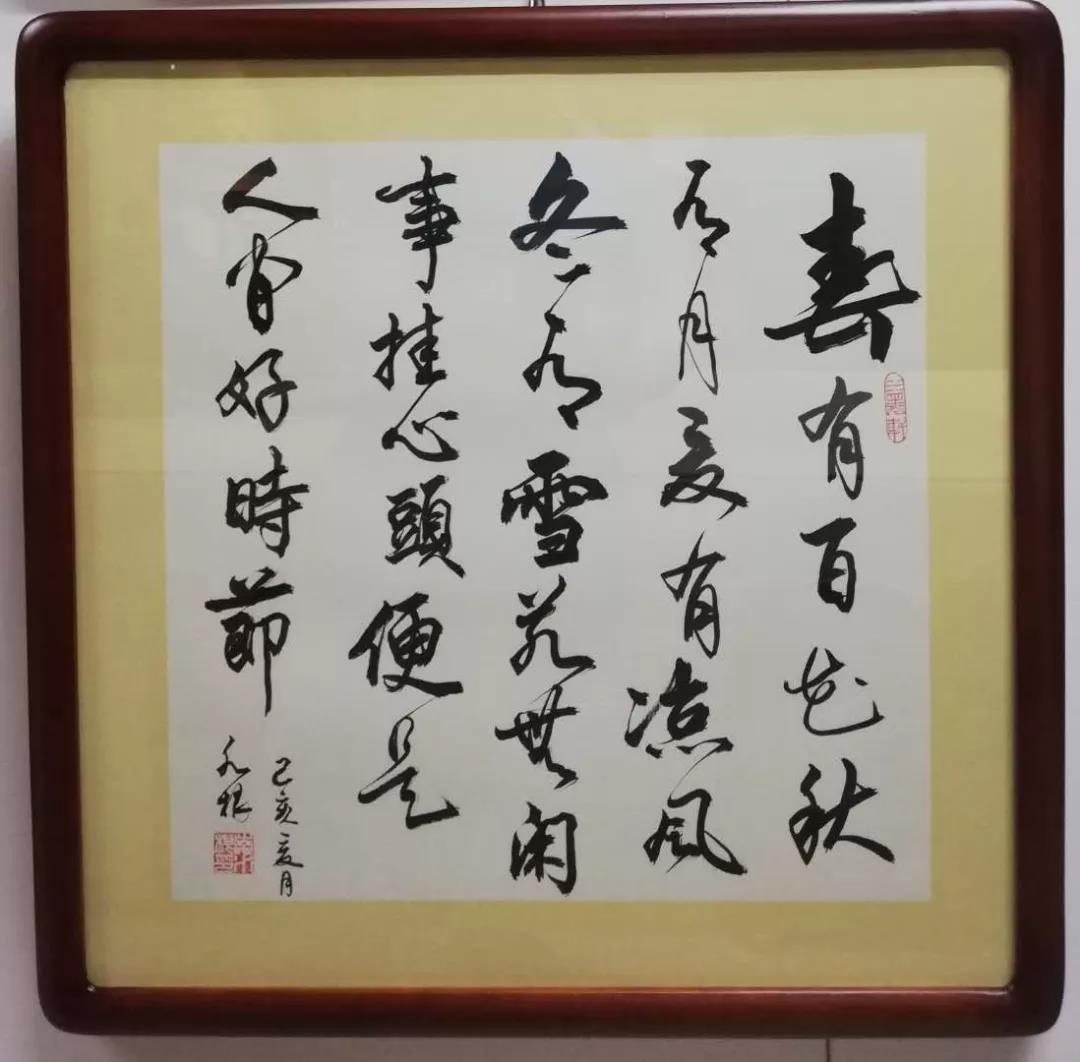 春有百花秋
有月夏有凉风
冬有雪若無闲
事挂心頭便是
人間好時節
己亥夏月
永根